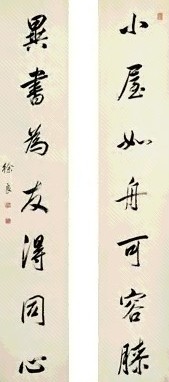 小屋如舟可容膝
異書為友得同心
徐良